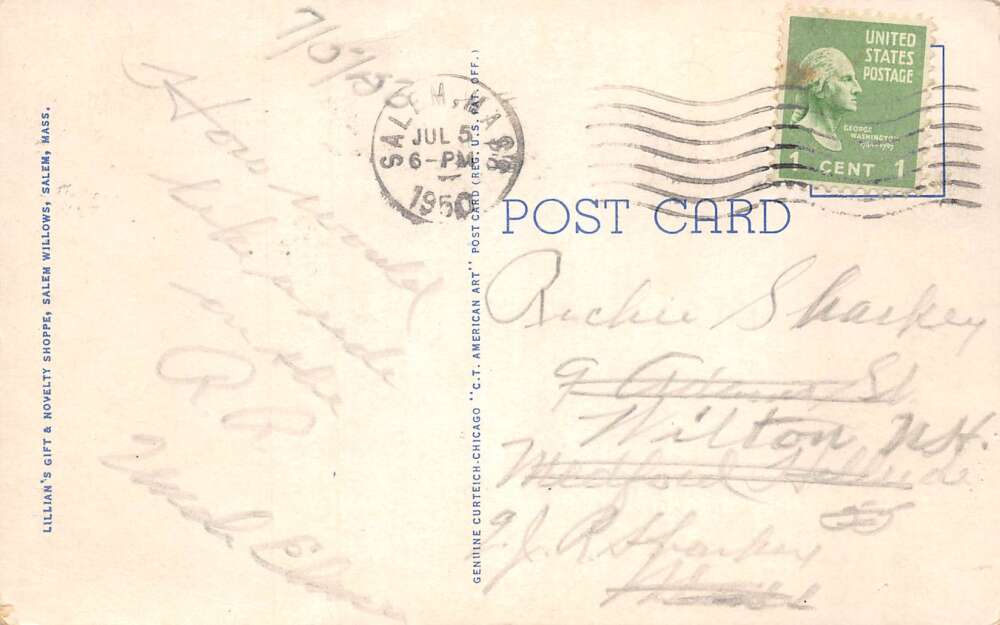 LILLIAN'S GIFT & NOVELTY SHOPPE, SALEM WILLOWS, SALEM, MASS.
7/5/50
How would
like a ride
on the
R R
Uncle Elmer
GENUINE CURTEICH-CHICAGO "C.T. AMERICAN ART" POST CARD (REG. U.S. PAT. OFF.)
SALEM, MASS.
JUL 5
6-PM
1950
UNITED
STATES
POSTAGE
GEORGE
WASHINGTON
1 CENT 1
POST CARD
Richie Sharkey
9 Adams St
Wilton N.H.
Medford Hillside
55
J. R. Sharkey
Mass